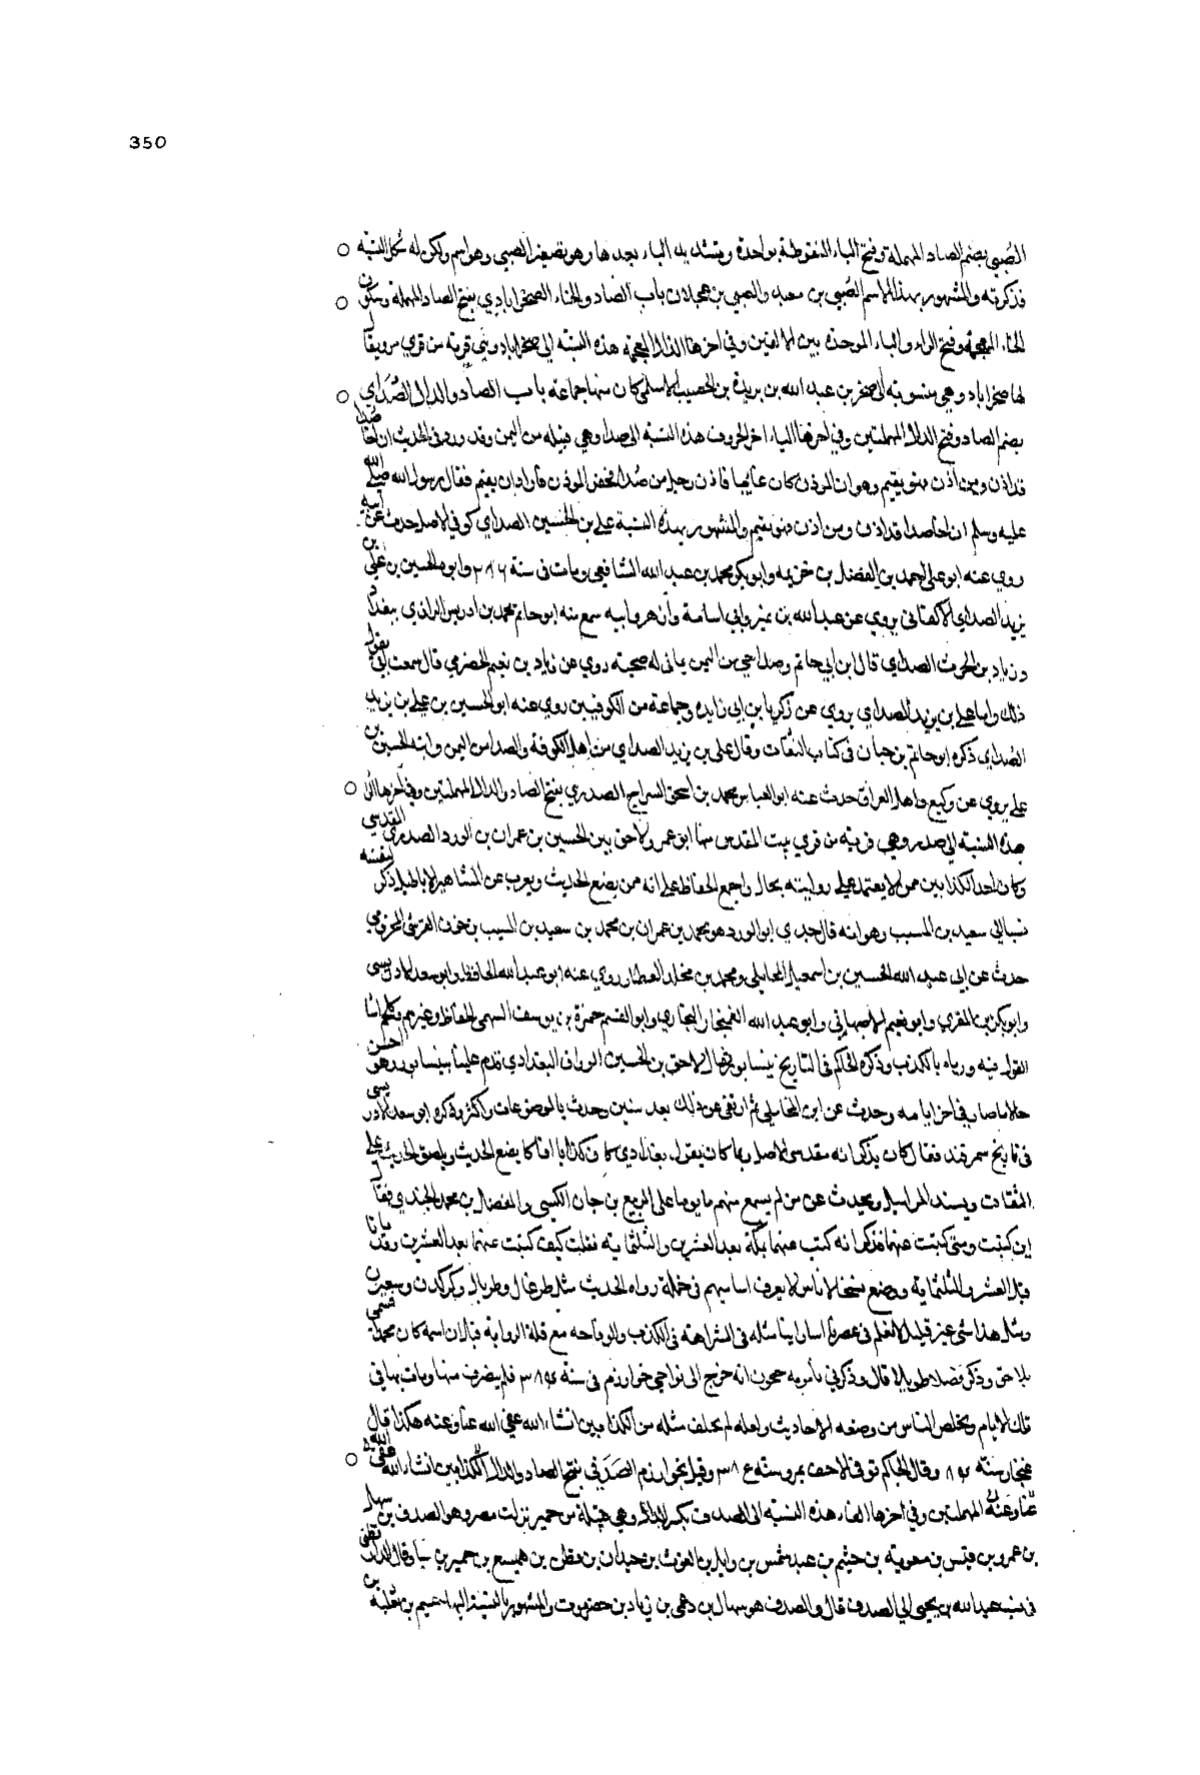 350
الصُبي بضم الصاد المهملة وفتح الباء المنقوطة بواحدة وتشديد الياء بعدها وهو تصغير الصبي وهو اسم ولكن له شكل النسبة
فذكرته والمشهور بهذا الاسم الصُبي بن معبد والصبي بن عجلان باب الصاد والخاء الصخراباذي بفتح الصاد المهملة وسكون
الخاء المعجمة وفتح الراء والباء الموحدة بين الالفين وفي اخرها الذال المعجمة هذه النسبة الى صخراباد وهي قرية من قري مرو يقال
لها صخراباد وهي منسوبة الى صخر بن عبد الله بن بريدة بن الحصيب الاسلمي كان منها جماعة باب الصاد والدال الصُدَاي
بضم الصاد وفتح الدال المهملتين وفي اخرها الياء اخر الحروف هذه النسبة الى صدا وهي قبيلة من اليمن وقد ورد في الحديث ان اخا صُدا
قد اذن ومن اذن فهو يقيم وهو ان الموذن كان غايبا فاذن رجل من صُدا فحضر الموذن فاراد ان يقيم فقال رسول الله صلى الله
عليه وسلم ان اخا صدا قد اذن ومن اذن فهو يقيم والمشهور بهذه النسبة علي بن الحسين الصداي كوفي الاصل حدث عن ابيه
روي عنه ابو علي احمد بن الفضل بن خزيمة وابو بكر محمد بن عبد الله الشافعي ومات في سنة ٢٨٦ وابو الحسين بن علي بن
يزيد الصداي الاكفاني يروي عن عبد الله بن نمير وابي اسامة وازهر وابيه سمع منه ابو حاتم محمد بن ادريس الرازي ببغداد
وزياد بن الحرث الصداي قال ابن ابي حاتم وصدا حي من اليمن يماني له صحبة روي عن زياد بن نعيم الحضرمي قال سمعت ابي يقول
ذلك واما علي بن يزيد الصداي يروي عن زكريا بن ابي زايدة وجماعة من الكوفيين روي عنه ابو الحسين بن علي بن يزيد
الصُداي ذكره ابو حاتم بن حبان في كتاب الثقات وقال علي بن يزيد الصداي من اهل الكوفة والصدا من اليمن وابنه الحسين بن
علي يروي عن وكيع واهل العراق حدث عنه ابو العباس محمد بن اسحق السراج الصدري بفتح الصاد والدال المهملتين وفي اخرها الراء
هذه النسبة الى صدر وهي قرية من قري بيت المقدس منها ابو عمرو لاحق بن الحسين بن عمران بن ابي الورد الصدري القدسي
وكان احد الكذابين ممن لا يعتمد على روايته بحال واجمع الحفاظ على انه ممن يضع الحديث ويعرب عن المشاهير الاباطيل ذكر لنفسه
نسبا الى سعيد بن المسيب وهو انه قال جدي ابو الورد هو محمد بن عمران بن محمد بن سعيد بن المسيب بن حزن القرشي المخزومي
حدث عن ابي عبد الله الحسين بن اسمعيل المحاملي ومحمد بن مخلد العطار روي عنه ابو عبد الله الحافظ وابو سعد الادريسي
وابو بكر بن المقري وابو نعيم الاصبهاني وابو عبد الله الغنجار البخاري وابو القسم حمزة بن يوسف السهمي الحفاظ وغيرهم وكلهم اسا
القول فيه ورماه بالكذب وذكره الحاكم في التاريخ نيسابور فقال لاحق بن الحسين الوراق البغدادي قدم علينا نيسابور وهو احسن
حالا مما صار في اخر ايامه وحدث عن ابن المحاملي ثم ارتقى عن ذلك بعد سنين وحدث بالموضوعات واكثر وذكره ابو سعد الادريسي
في تاريخ سمرقند فقال كان يذكر انه مقدسي الاصل وربما كان يقول بغدادي كان كذابا افاكا يضع الحديث ويلصق الحديث على
الثقات ويسند المراسيل ويحدث عن من لم يسمع منهم ما يوما على الربيع بن حبان الكسي والمفضل بن محمد الجندي فقال
اين كتبت ومتى كتبت عنهما فذكر انه كتب عنهما بمكة بعد العشرين والثلثماية فقلت كيف كتبت عنهما بعد العشرين وقد ماتا
قبل العشر والثلثماية ووضع نسخا لاناس لا يعرف اساميهم في جملة رواة الحديث مثل طرغال وطربال وكركدن وسعيرن
ومثل هذا شي غير قليل لا نعلم في عصرنا اسا راينا مثله في الشراهة في الكذب والوقاحة مع قلة الرواية قيل ان اسمه كان محمدا فتسمى
بلاحق وذكر فضلا طويلا قال وذكر لي انه خرج الى نواحي خوارزم في سنة ٣٨٤ فلم ينصرف منها ومات بها في
تلك الايام وتخلص الناس من وضعه الاحاديث ولعله لم يخلف مثله من الكذابين انشاء الله عفى الله عنا وعنه هكذا قال
غنجار سنة ٨٤ وقال الحاكم توفي لاحق بمرو سنة ٣٨٤ وقيل بخوارزم الصَدَفي بفتح الصاد والدال الكذابين انشاء الله عفى الله
عنا وعنه المهملتين وفي اخرها الفاء هذه النسبة الى الصدف بكسر الدال وهي قبيلة من حمير نزلت مصر وهو الصدف بن سهل
بن عمرو بن قيس بن معوية بن جشم بن عبد شمس بن وايل بن الغوث بن حيدان بن قطن بن هميسع بن حمير بن سبا وقال الدارقطني
في نسب عبد الله بن يحيى الى الصدف قال والصدف هو سهال بن دعمي بن زياد بن حضرموت والمشهور بالنسبة اليها عميم بن ثعلبة بن